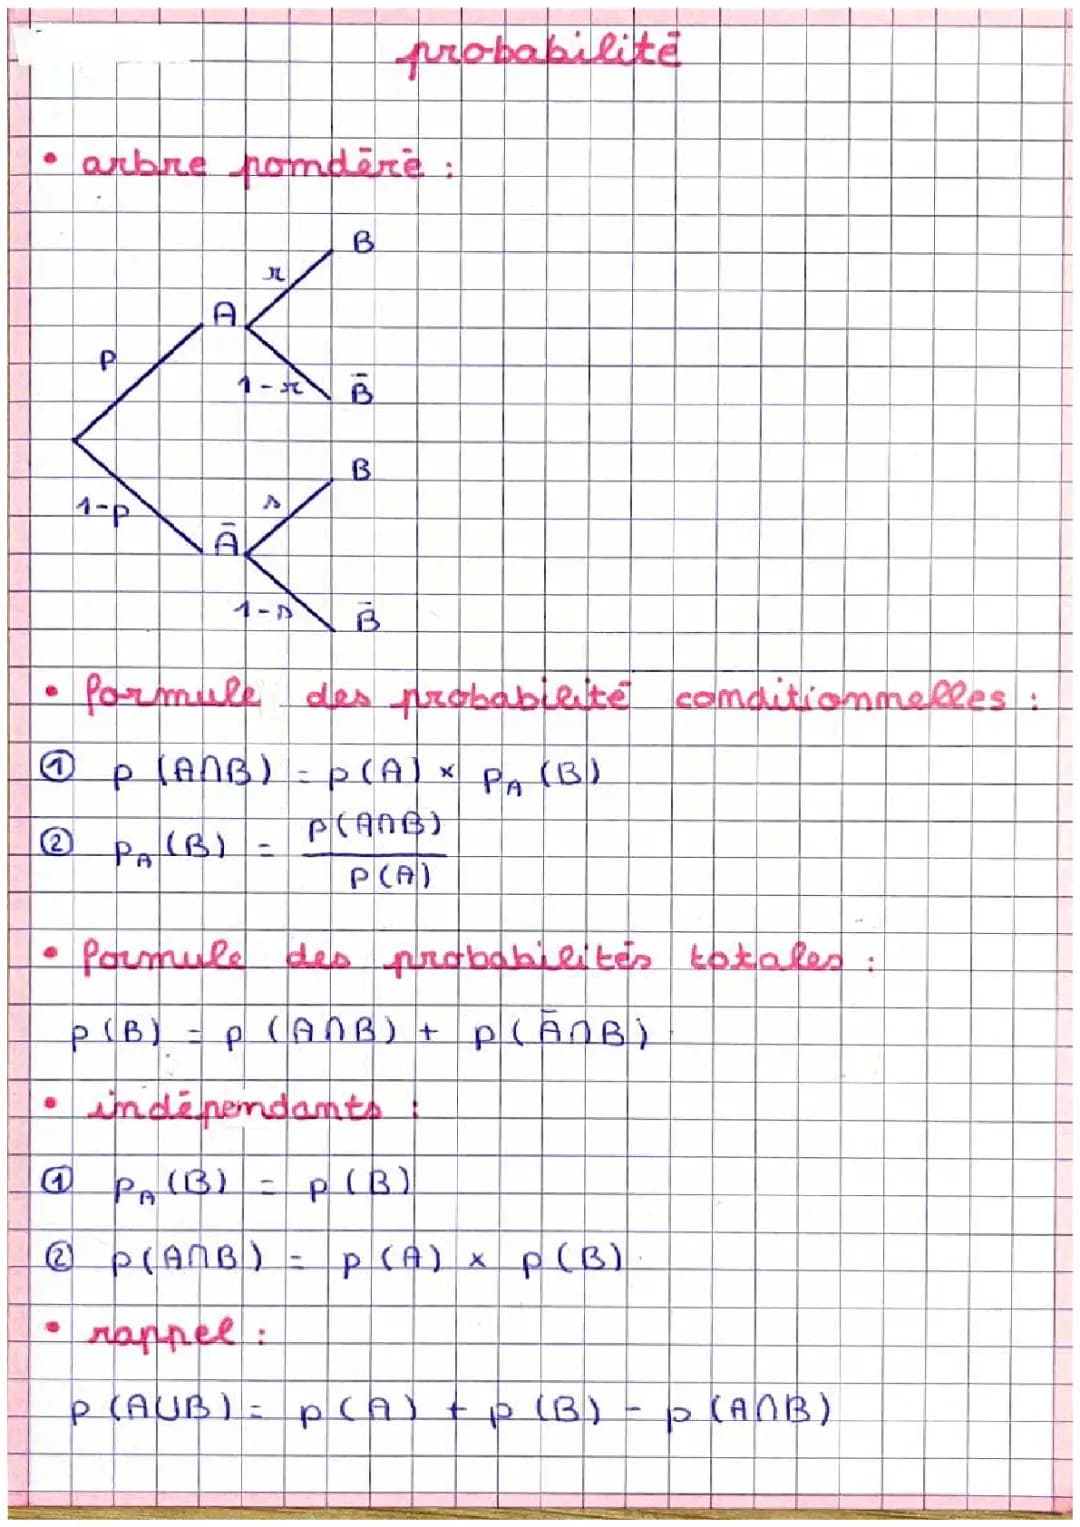 probabilité
• arbre pondéré :
B
r
A
p
1-r
B̄
B
1-p
s
Ā
1-s
B̄
• formule des probabilité conditionnelles :
① p (A∩B) = p(A) × p_A (B)
② p_A (B) = p(A∩B) / p(A)
• formule des probabilités totales :
p(B) = p (A∩B) + p(Ā∩B)
• indépendants :
① p_A (B) = p(B)
② p(A∩B) = p(A) × p(B).
• rappel :
p (A∪B) = p(A) + p(B) - p(A∩B)